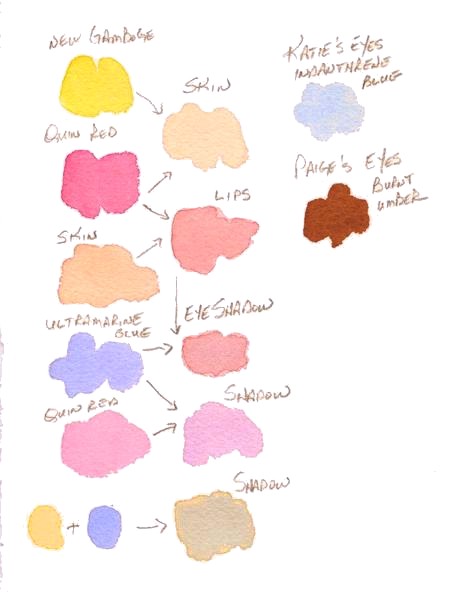 NEW GAMBOGE
SKIN
QUIN RED
LIPS
SKIN
EYESHADOW
ULTRAMARINE
BLUE
QUIN RED
SHADOW
+
SHADOW
KATIE'S EYES
INDANTHRENE
BLUE
PAIGE'S EYES
BURNT
UMBER